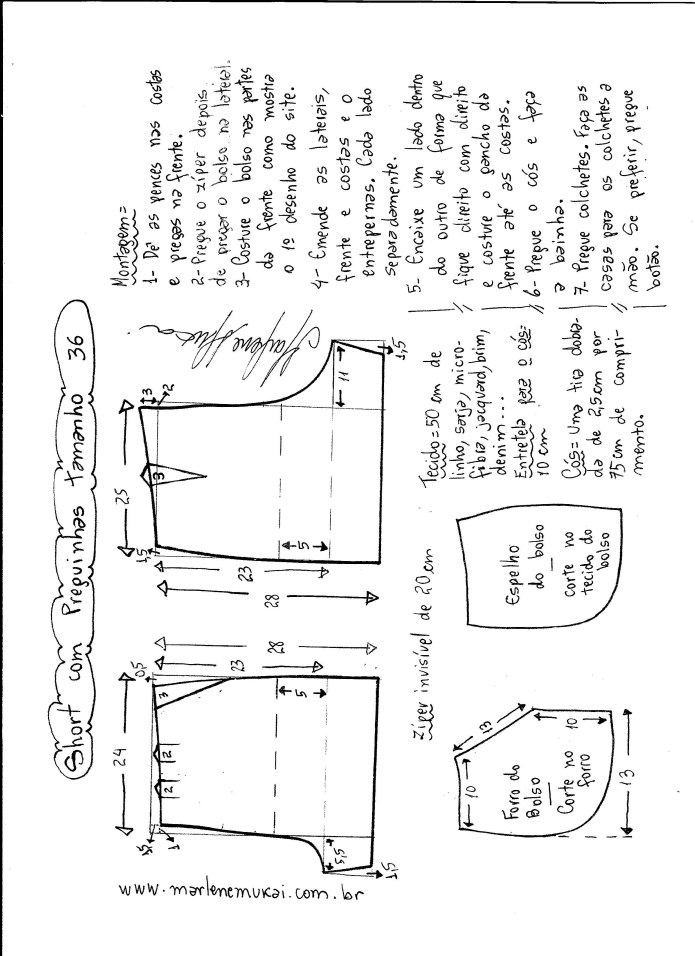 Short com Preguinhas Tamanho 36
24
0,5
1,5
1
2
2
3
5
5,5
1,5
23
28
25
3
2
1,5
3
5
11
1,5
23
28
www.marlenemukai.com.br
zíper invisível de 20 cm
10
13
10
13
Forro do
Bolso
Corte no
forro
Espelho
do bolso
corte no
tecido do
bolso
Tecido = 50 cm de
linho, sarja, micro-
fibra, jacquard, brim,
denim...
Entretela para o cós=
10 cm
Cós= Uma tira dobra-
da de 2,5cm por
75 cm de compri-
mento.
Montagem=
1- Dê as pences nas costas
e pregas na frente.
2- Pregue o zíper depois
de pregar o bolso na lateral.
3- Costure o bolso nas partes
da frente como mostra
o 1º desenho do site.
4- Emende as laterais,
frente e costas e o
entrepernas. Cada lado
separadamente.
5- Encaixe um lado dentro
do outro de forma que
fique direito com direito
e costure o gancho da
frente até as costas.
6- Pregue o cós e faça
a bainha.
7- Pregue colchetes. Faça as
casas para os colchetes a
mão. Se preferir, pregue
botão.